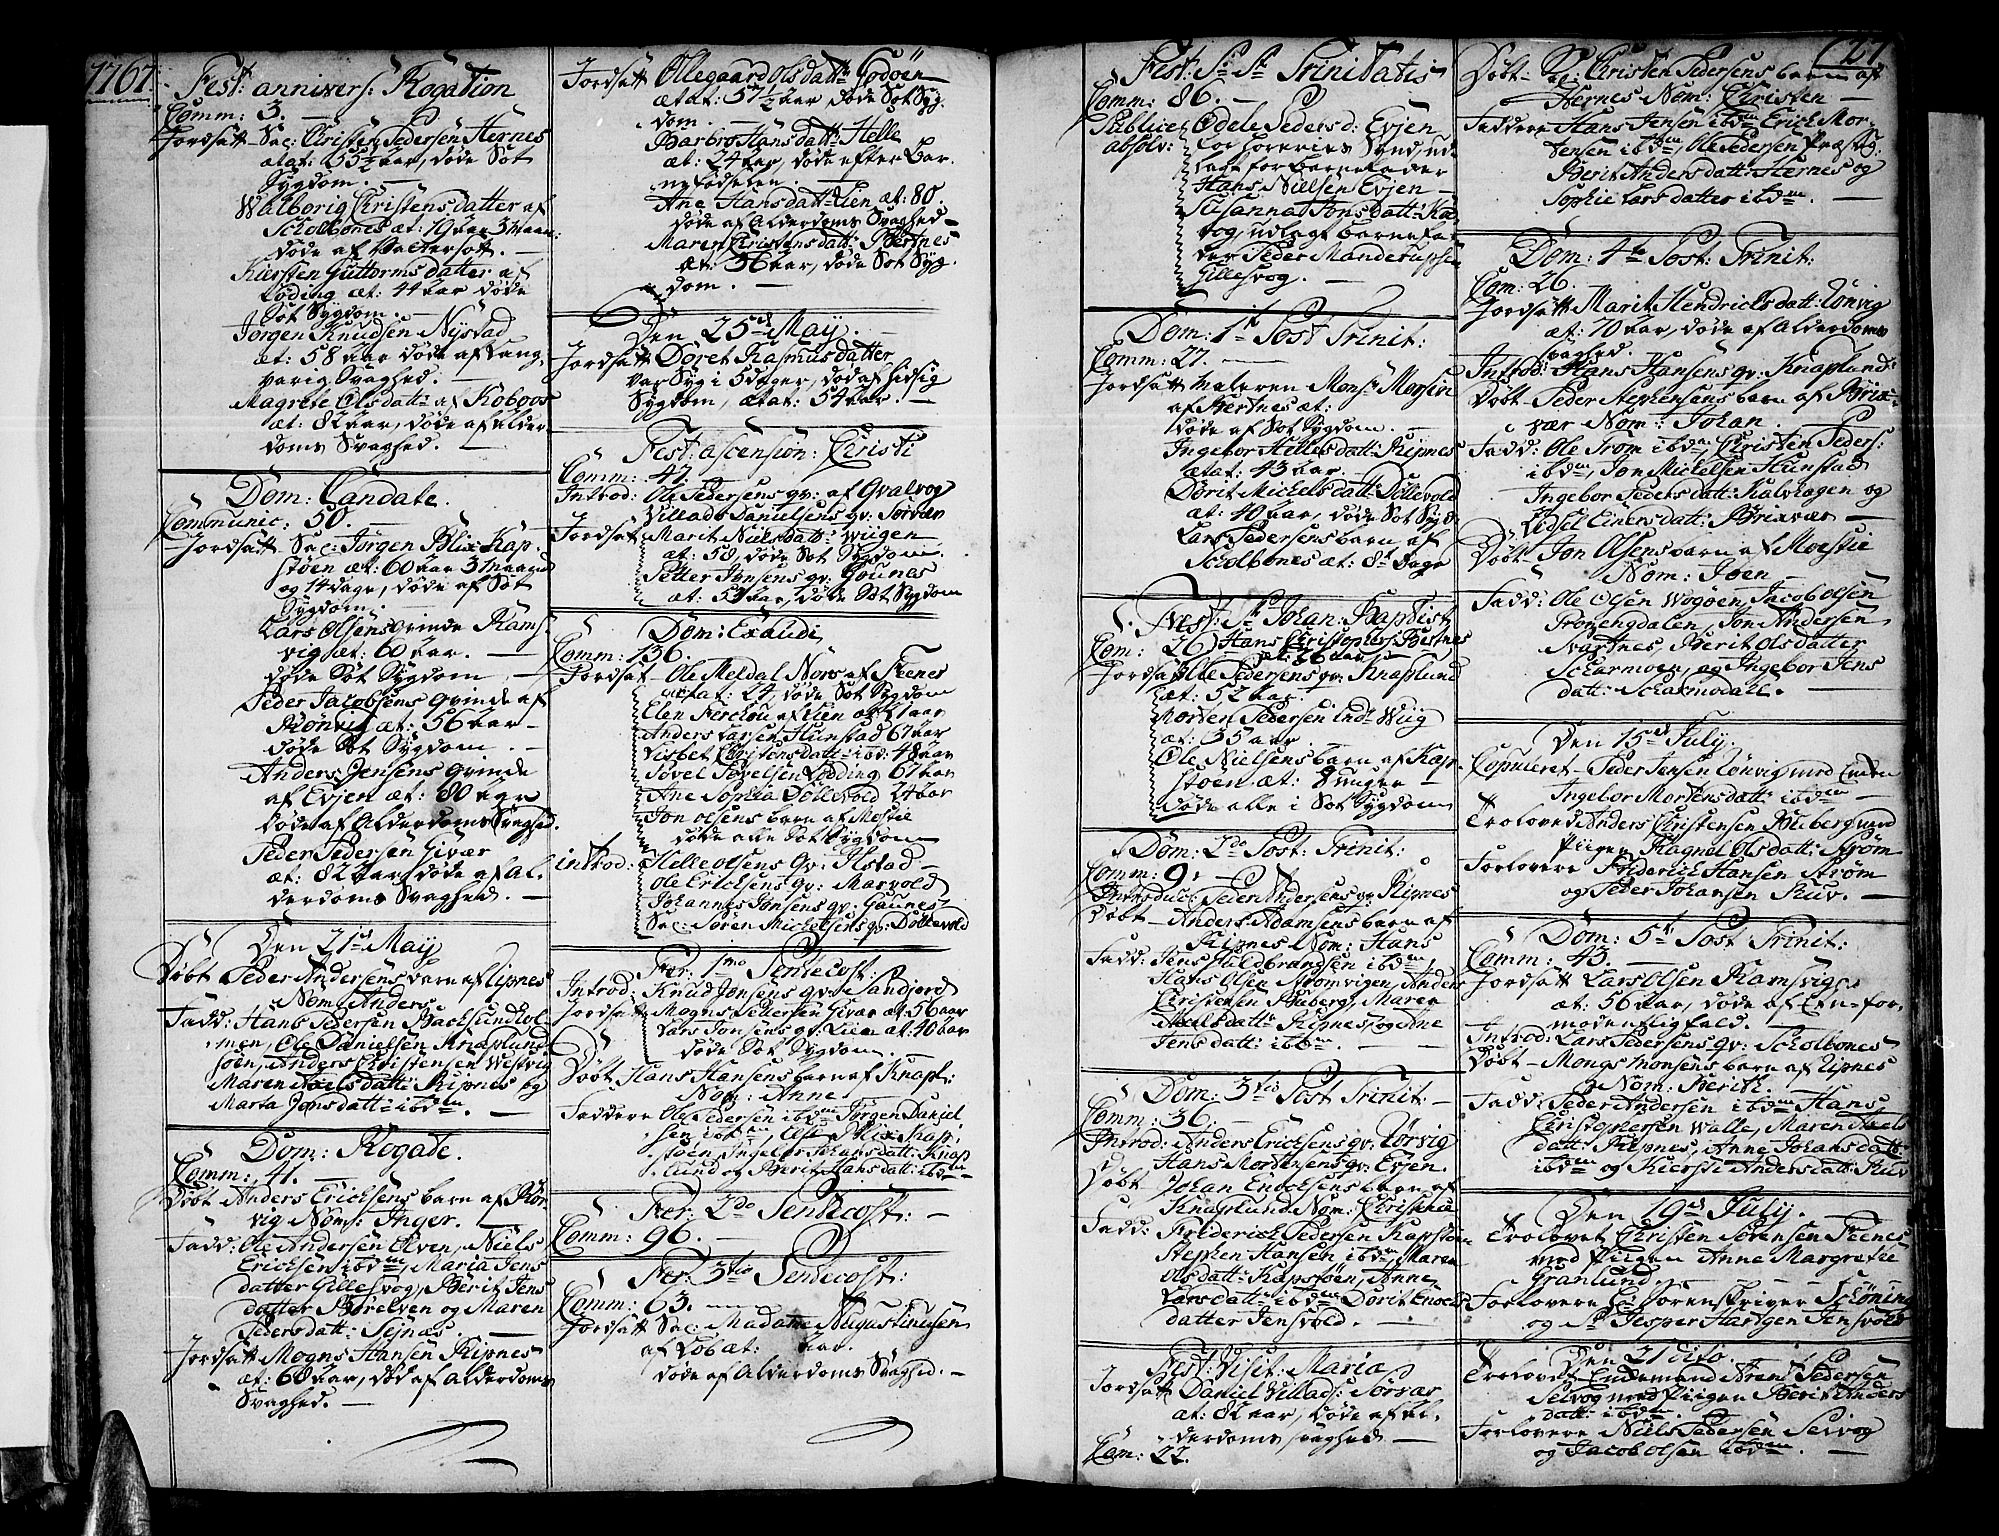 1767.
Fest: annivers: Rogation
Comm: 3.
Jordsatt Sac: Christen Pedersen Hernes
ætat: 55½ aar, døde Sot
Sygdom.
Walborig Christensdatter af
Scholbones æt: 19 aar 3 maan:
døde af Vattersot.
Kiersten Guttormsdatter af
Løding æt: 44 aar døde
Sot Sygdom.
Jørgen Knudsen Nystad
æt: 58 aar døde af Lang
varig Svaghed.
Magrete Olsdatt: af Koboos
æt: 82 aar, døde af Alder
doms Svaghed.
Dom: Cantate.
Communic: 50.
Jordsatt Sac: Jørgen Blix Kap
støen æt: 60 aar 3 maaned
og 14 dage, døde af Sot
Sygdom.
Lars Olsens qvinde Rams
vig æt: 60 aar.
døde Sot Sygdom.
Peder Jacobsens qvinde af
Rønvig æt: 56 aar
døde Sot Sygdom.
Anders Jensens qvinde
af Evjen æt: 80 agr
døde af Alderdoms Svaghed.
Peder Pedersen Givær
æt: 82 aar, døde af Al-
derdoms Svaghed.
Den 21de May
Døbt Peder Andersens barn af Ripnes
Nom: Anders
Fadd: Hans Pedersen Bachsundhol
men, Ole Danielsen Knaplund
søen, Anders Christensen Westvig
Maren Axelsdatt: Ripnes og
Marta Jonsdatt: ibdm.
Dom: Rogate.
Comm: 41.
Døbt Anders Ericksens barn af Rør
vig Nom: Inger.
Fadd: Ole Andersen Elven, Niels
Ericksen ibdm, Maria Jens
datter Gillesvog, Berit Jens
datter Børelven og Maren
Pedersdatt: Sejnæs.
Jordsatt Mogns Hansen Ripnes
æt: 60 aar, død af Alderdoms
Svaghed.
Jordsatt Ollegaard Olsdatt: Godøen
ætat: 57½ aar døde Sot Syg
dom.
Barbro Hansdatt: Helle
æt: 24 aar, døde efter Bar
nefødselen
Ane Hansdatt: Lien æt: 80.
døde af Alderdoms Svaghed
Maren Christensdatt: Bestnes
æt: 36 aar, døde Sot Syg
dom.
Den 25de May.
Jordsatt Døret Rasmusdatter
var Syg i 5 dager, død af hidsig
Sygdom, ætat: 54 aar.
Fest: ascension: Christi
Comm: 47.
Introd: Ole Pedersens qv: af Qvalvog
Villads Danielsens qv: Sørvær
Jordsat Marit Nielsdatt: Wiigen
æt: 50, døde Sot Sygdom.
Petter Jonsens qv: Gounes
æt: 50 aar, døde Sot Sygdom
Dom: Exaudi
Comm: 136.
Jordsat Ole Meldal Nors af Feenes
ætat: 24, døde Sot Sygdom
Elen Ferchou af Lien æt: 1 aar
Anders Larsen Hunstad 67 aar
Lisbet Christensdatt: ibd: 48 aar
Søvel Søvelsen Løding 67 aar
Ane Sophia Döllevold 24 aar
Jon Olsens barn af Mestie
døde alle Sot Sygdom
introd: Helle Olsens qv: Ilstad
Ole Ericksens qv: Marvold
Johannes Jonsens qv: Gaunes
Sac: Søren Michelsens qv: Döllevold
Fer: 1mo Pentecost:
Introd: Knud Jonsens qv: Sandjord
Jordsatt Mogns Pettersen Givær æt: 56 aar
Lars Jonsens qv: Lien æt: 40 aar
døde Sot Sygdom.
Døbt Hans Hansens barn af Knapl:
Nom: Anne
Faddere Ole Pedersen ibdm Jørgen Daniel
sen ibdm, Blix Kap
støen Ingebor Johansdatt: Knap
lund og Berit Hansdatt: ibdm
Fer: 2do Pentecost:
Comm: 96.
Fer: 3tio Pentecost:
Comm: 63.
Jordsatt Sac: Madame Augustinusen
af Løb æt: aar.
døde af Alderdoms Svaghed.
Fest: S: St: Trinitatis
Comm: 86.
Publice absolv: Odele Peders d: Evjen
for horeries Synd, ud
lagt for barnefader
Hans Nielsen Evjen
Susanna Jonsdatt: Ka
vog, udlagt barnefa
der Peder Manderupsen
Gillesvog.
Dom: 1st Post Trinit:
Comm: 27.
Jordsatt Maleren Monsr Morsin
af Bertnes æt:
døde af Sot Sygdom.
Ingebor Hellesdatt: Ripnes
ætat: 43 aar.
Dorit Michelsdatt: Döllevold
æt: 40 aar, døde Sot Sygd
Lars Pedersens barn af
Scholbones æt: 8t Dage
Fest: St: Johan: Baptist
Com: 26 Hans Christophers: Bestnes
æt: 36 aar
Jordsatt Ole Pedersens qv: Knaplund
æt: 52 aar.
Morten Pedersen Ind: Wiig
æt: 35 aar
Ole Nielsens barn af Kap
støen æt: 8 uger
døde alle i Sot Sygdom
Dom: 2do Post: Trinit:
Comm: 91
Introduc: Peder Andersens qv: Ripnes
Døbt Anders Adamsens barn af
Ripnes Nom: Hans
Fadd: Jens Hildbrandsen ibdm,
Hans Olsen Strømvigen, Anders
Christensen Rueberg, Maren
Axelsdatt: Ripnes og Ane
Jensdatt: ibdm.
Dom: 3tio Post Trinit:
Comm: 36.
Introd: Anders Ericksens qv: Rørvig
Hans Mortensens qv: Evjen.
Døbt Johan Enochsens barn af
Knaplund Nom: Christina
Fadd: Friderich Pedersen Kapstøen
Stephen Hansen ibdm, Maren
Olsdatt: Kapstøen, Anne
Larsdatt: ibdm Dorit Enochs
datter Jensvold.
Fest: Visit: Mariæ
Jordsatt Daniel Villads: Sørvær
æt: 82 aar, døde af Al-
derdoms svaghed
Com: 22.
127
Døbt Sac: Christen Pedersens barn af
Hernes Nom: Christen
Faddere Hans Jensen ibdm Erick Mor
tensen ibdm Ole Pedersen Præstg
Berit Andersdatt: Hernes og
Sophie Larsdatter ibdm.
Dom: 4te Post: Trinit:
Com: 26.
Jordsatt Marit Hendrichsdatt: Lønvig
æt: 70 aar, døde af Alderdoms
svaghed.
Introd: Hans Hansens qv: Knaplund
Døbt Peder Stephensens barn af Brix
vær Nom: Johan.
Fadd: Ole Trom ibdm, Christen Peders:
ibdm, Jon Michelsen Hunstad
Ingebor Pedersdatt: Kalvhagen og
Zidsel Einersdatt: Brixvær
Døbt Jon Olsens barn af Moestie
Nom: Joen
Fadd: Ole Olsen Wogøen, Jacob Olsen
Fronengdalen, Jon Andersen
Svartnes, Berit Olsdatter
Scharmoen, og Ingebor Jens
datt: Scharmodall.
Den 15de July.
Copuleret Peder Jensen Lønvig med Enken
Ingebor Mortensdatt: ibdm
Troloved Anders Christensen Rueberg med
Piigen Ragnel Olsdatt: Strøm
Forlovere Friderich Hansen Strøm
og Peder Johansen Ruv.
Dom: 5te Post Trinit:
Comm: 43.
Jordsatt Lars Olsen Ramsvig,
æt: 56 aar, døde af Een for
modentlig fald.
Introd: Lars Pedersens qv: Scholbones
Døbt Mongs Monsens barn af Ripnes
Nom: Berith
Fadd: Peder Andersen ibdm Hans
Christophersen Walle, Maren Axels
datt: Ripnes, Anne Johansdatt:
ibdm og Kiersti Andersdatt: Ruv
Den 19de July.
Trolovet Christen Sørensen Feenes
med Piigen Anne Margrethe
Granlund.
Forlovere Sr: Sorenskriver Schöning
og Sr: Jesper Hartgen Jensvold
Den 21 dito.
Trolovet Enkemand Arent Pedersen
Selvog med Piigen Berit Anders
datt: ibdm.
Forlovere Niels Pedersen Seivog
og Jacob Olsen ibdm.